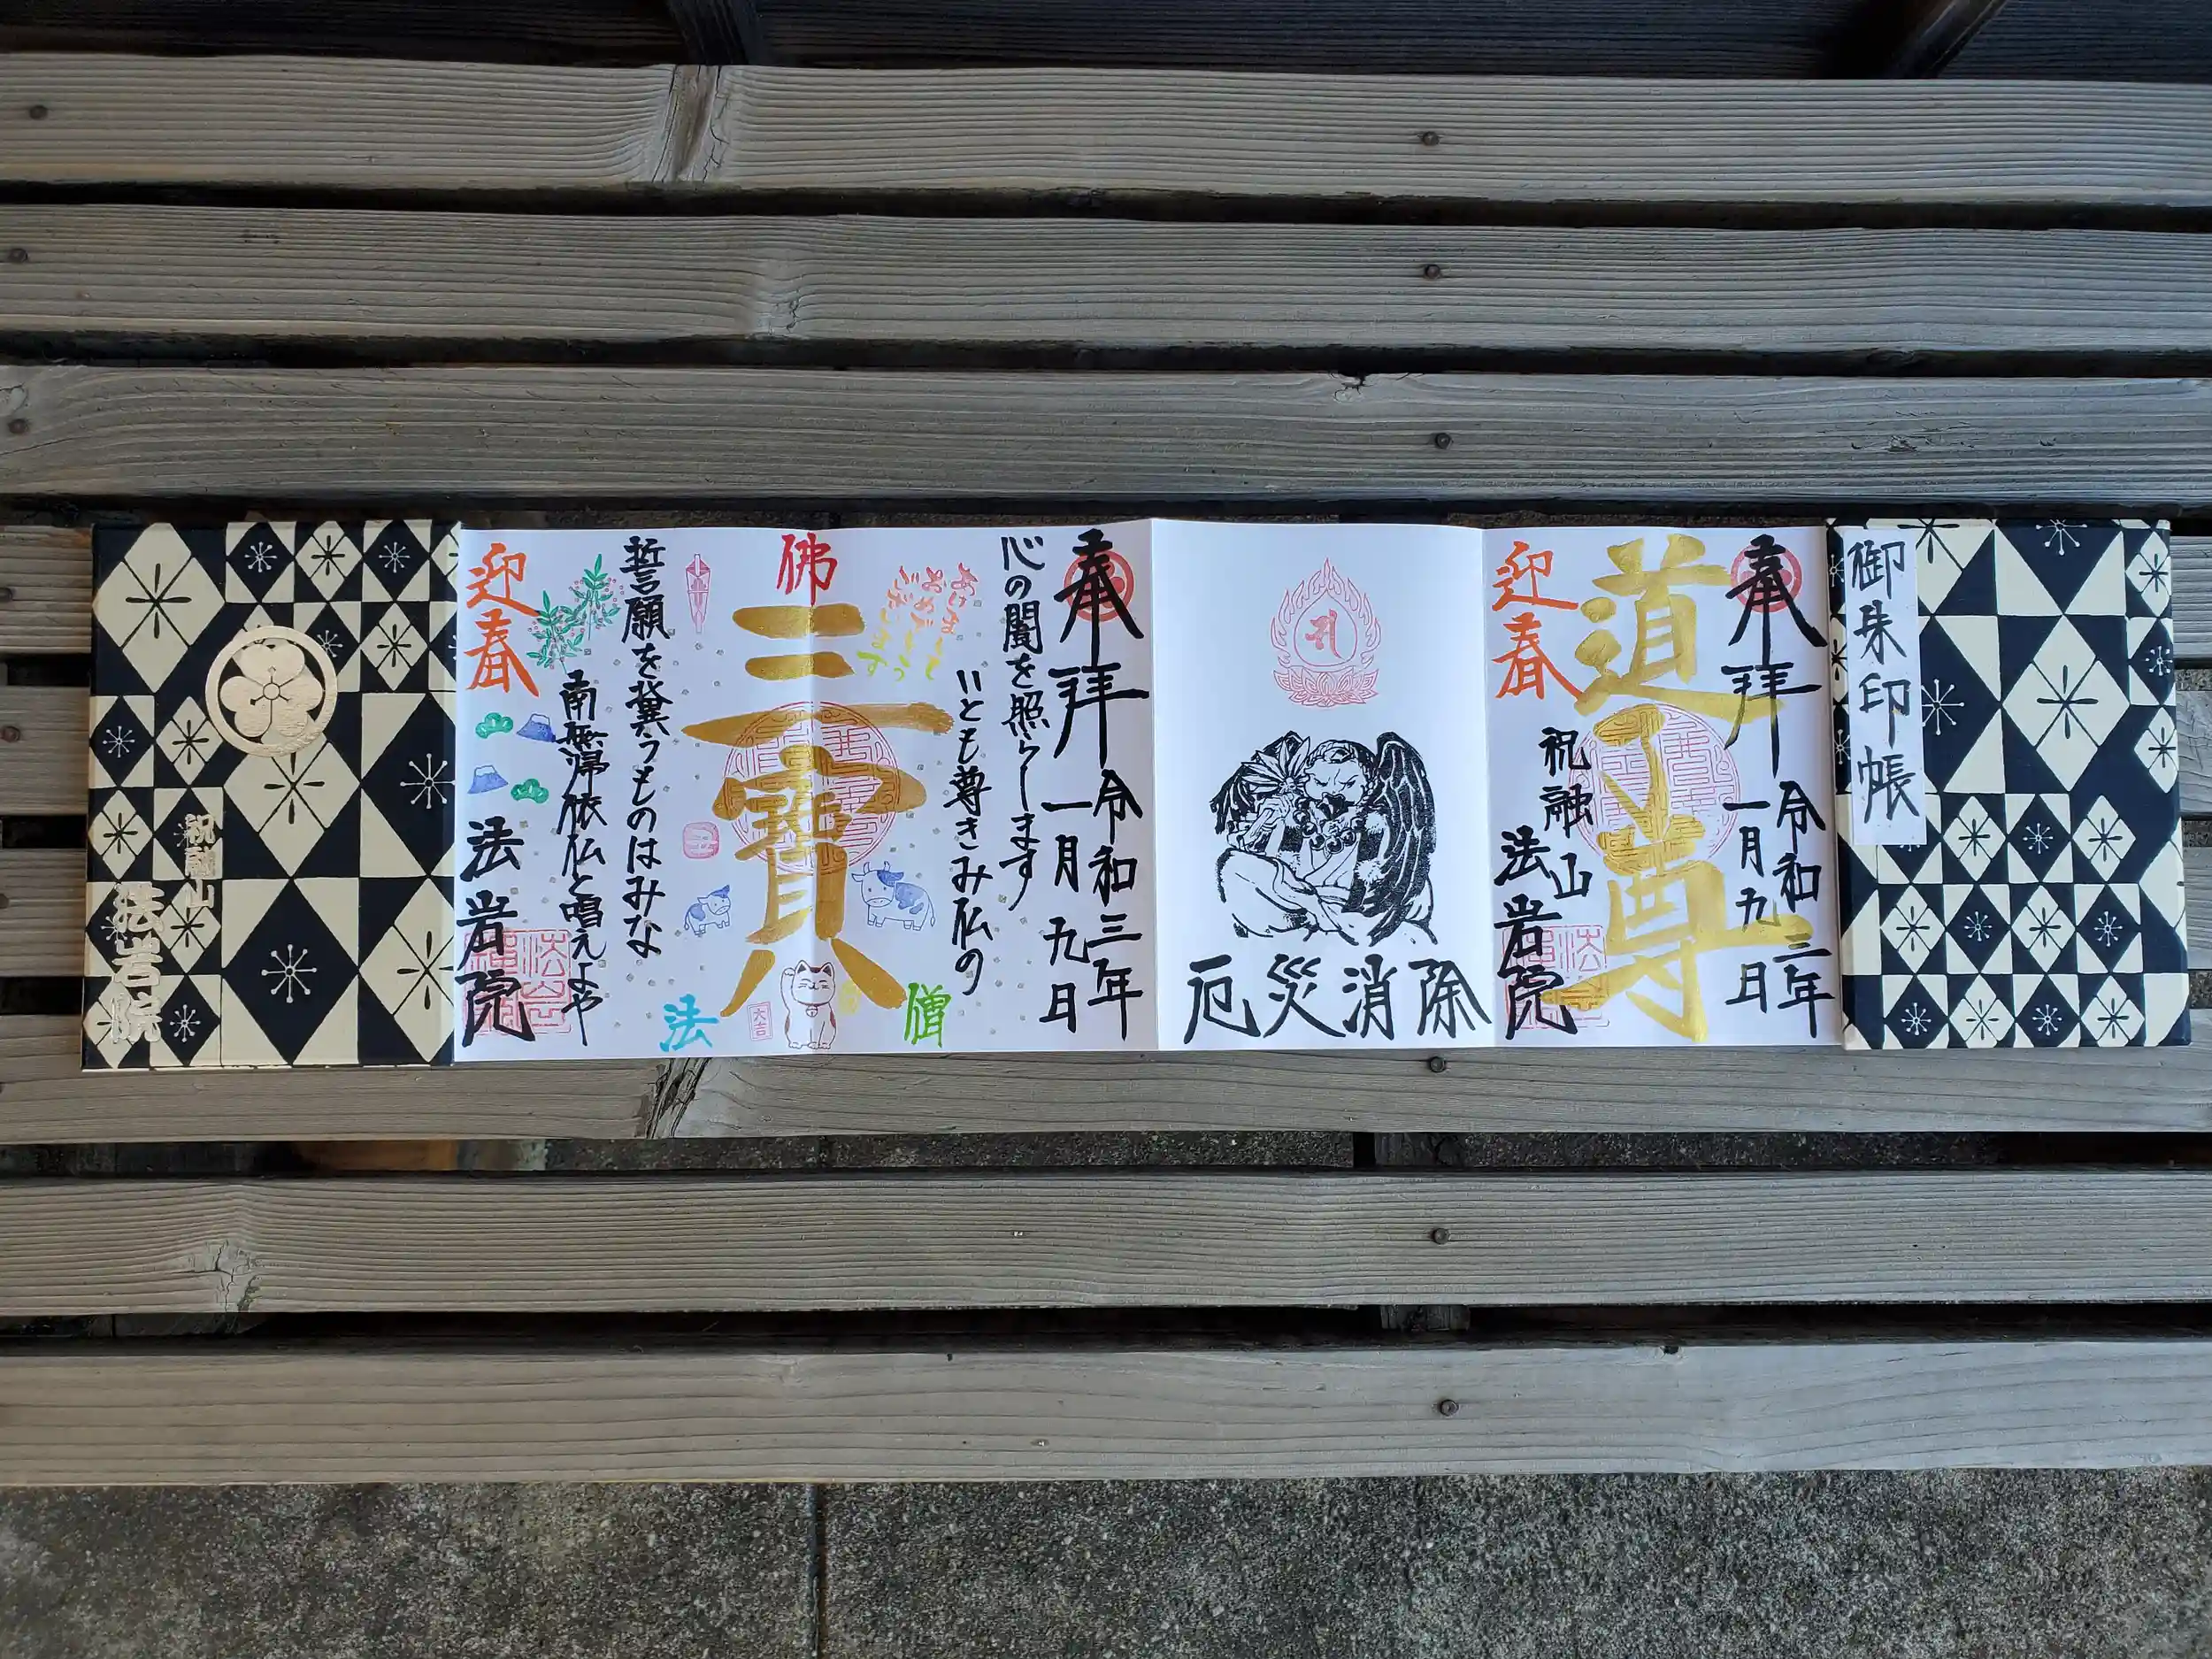 御朱印帳
奉拝
令和三年
一月九日
道了尊
迎春
祝融山
法岩院
厄災消除
奉拝
令和三年
一月九日
心の闇を照らします
いとも尊きみ仏の
あけまして
おめでとう
ございます
佛
三寳
僧
法
六吉
誓願を冀うものはみな
南無帰依仏と唱えよや
迎春
法岩院
祝融山
法岩院